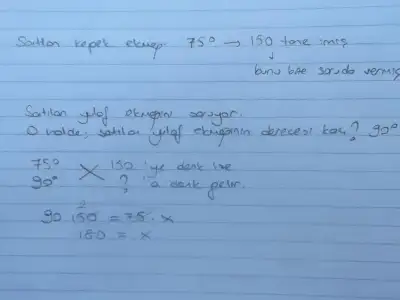 Satılan kepek ekmeği 75° → 150 tane imiş
↓
bunu bize soruda vermiş
Satılan yulaf ekmeğini soruyor.
O halde; satılan yulaf ekmeğinin derecesi kaç? 90°
75° 150 'ye denk ise
90° ? 'a denk gelir.
2
90 150 = 75 . x
180 = x